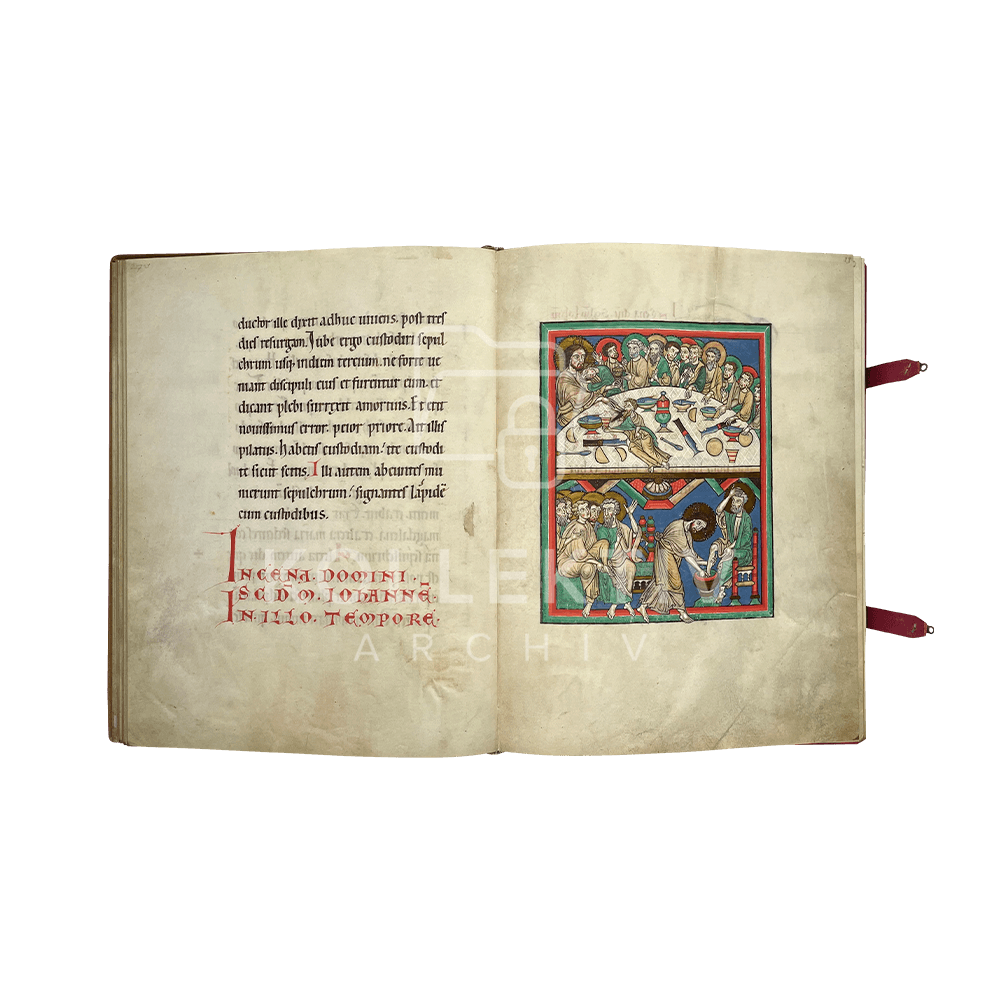 ductor ille dixit adhuc uiuens. post tres
dies resurgam. Iube ergo custodiri sepul
chrum usq; in diem tercium. ne forte ue
niant discipuli eius et furentur eum. et
dicant plebi surrexit a mortuis. Et erit
nouissimus error peior priore. Ait illis
pilatus. habetis custodiam. ite custodi
te sicut scitis. Illi autem abeuntes mu
nierunt sepulchrum. signantes lapidē
cum custodibus.
IN CENA. DOMINI.
SCDM. IOHANNE.
IN. ILLO. TEMPORE.
ARCHIV